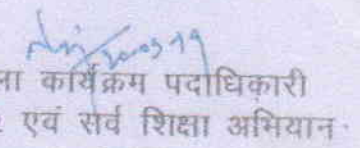 ना कार्यक्रम पदाधिकारी
एवं सर्व शिक्षा अभियान